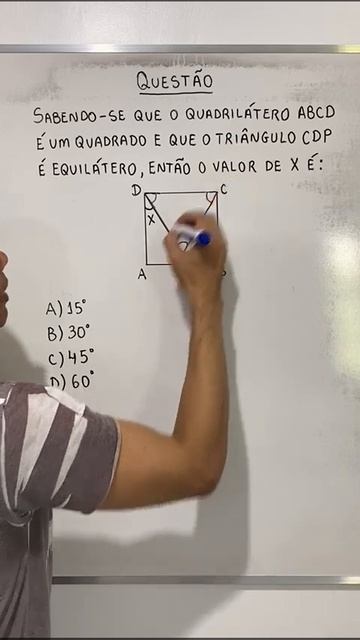 QUESTÃO
SABENDO-SE QUE O QUADRILÁTERO ABCD
É UM QUADRADO E QUE O TRIÂNGULO CDP
É EQUILÁTERO, ENTÃO O VALOR DE X É:
D C
X
A
A) 15°
B) 30°
C) 45°
D) 60°